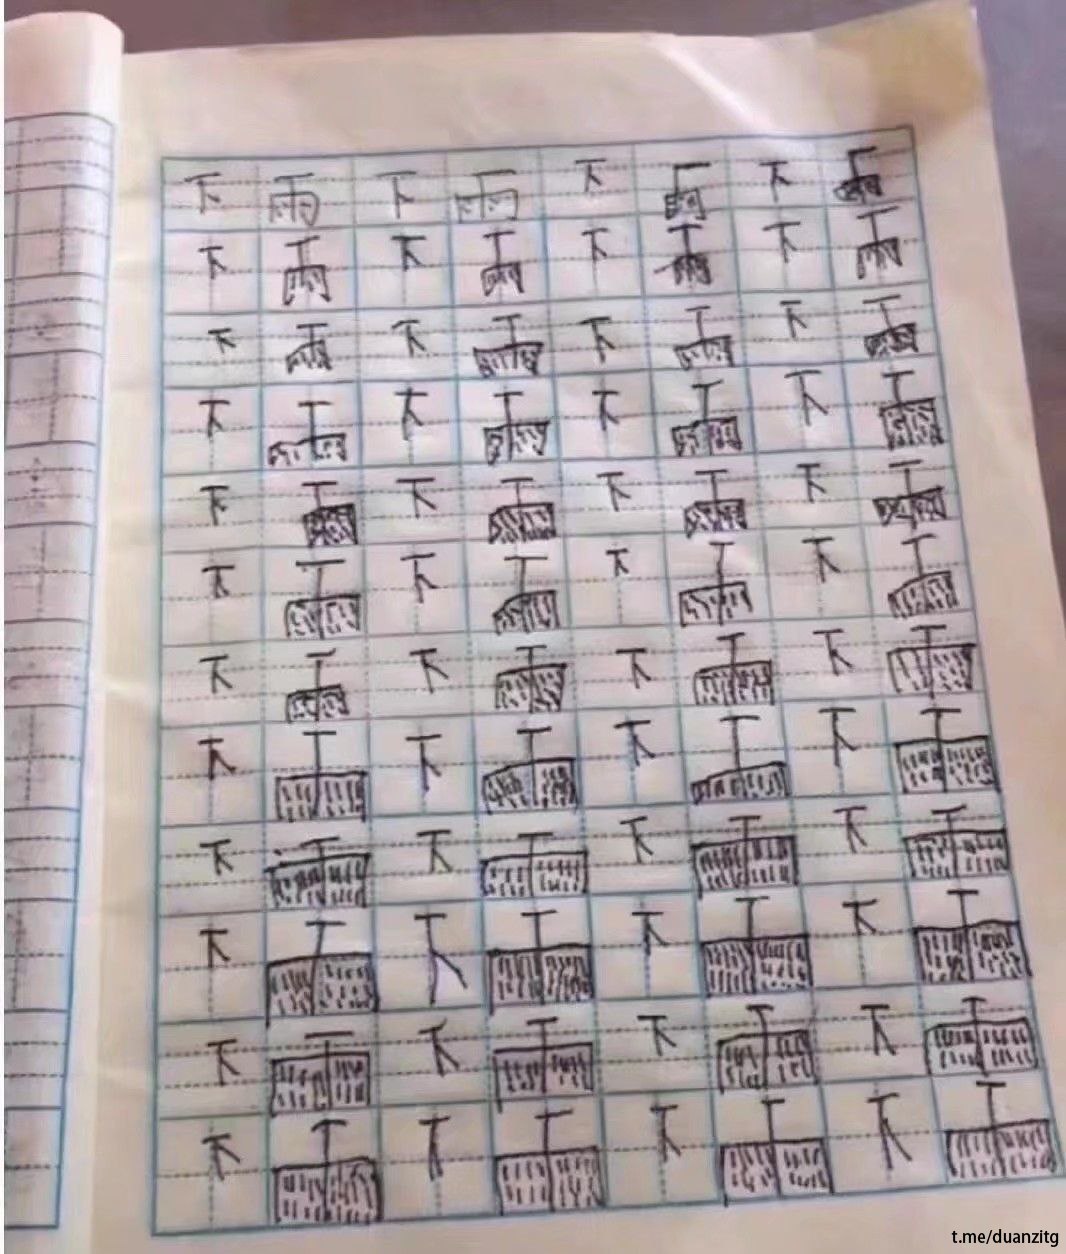 下雨下雨下雨下雨
下雨下雨下雨下雨
下雨下雨下雨下雨
下雨下雨下雨下雨
下雨下雨下雨下雨
下雨下雨下雨下雨
下雨下雨下雨下雨
下雨下雨下雨下雨
下雨下雨下雨下雨
下雨下雨下雨下雨
下雨下雨下雨下雨
下雨下雨下雨下雨
t.me/duanzitg